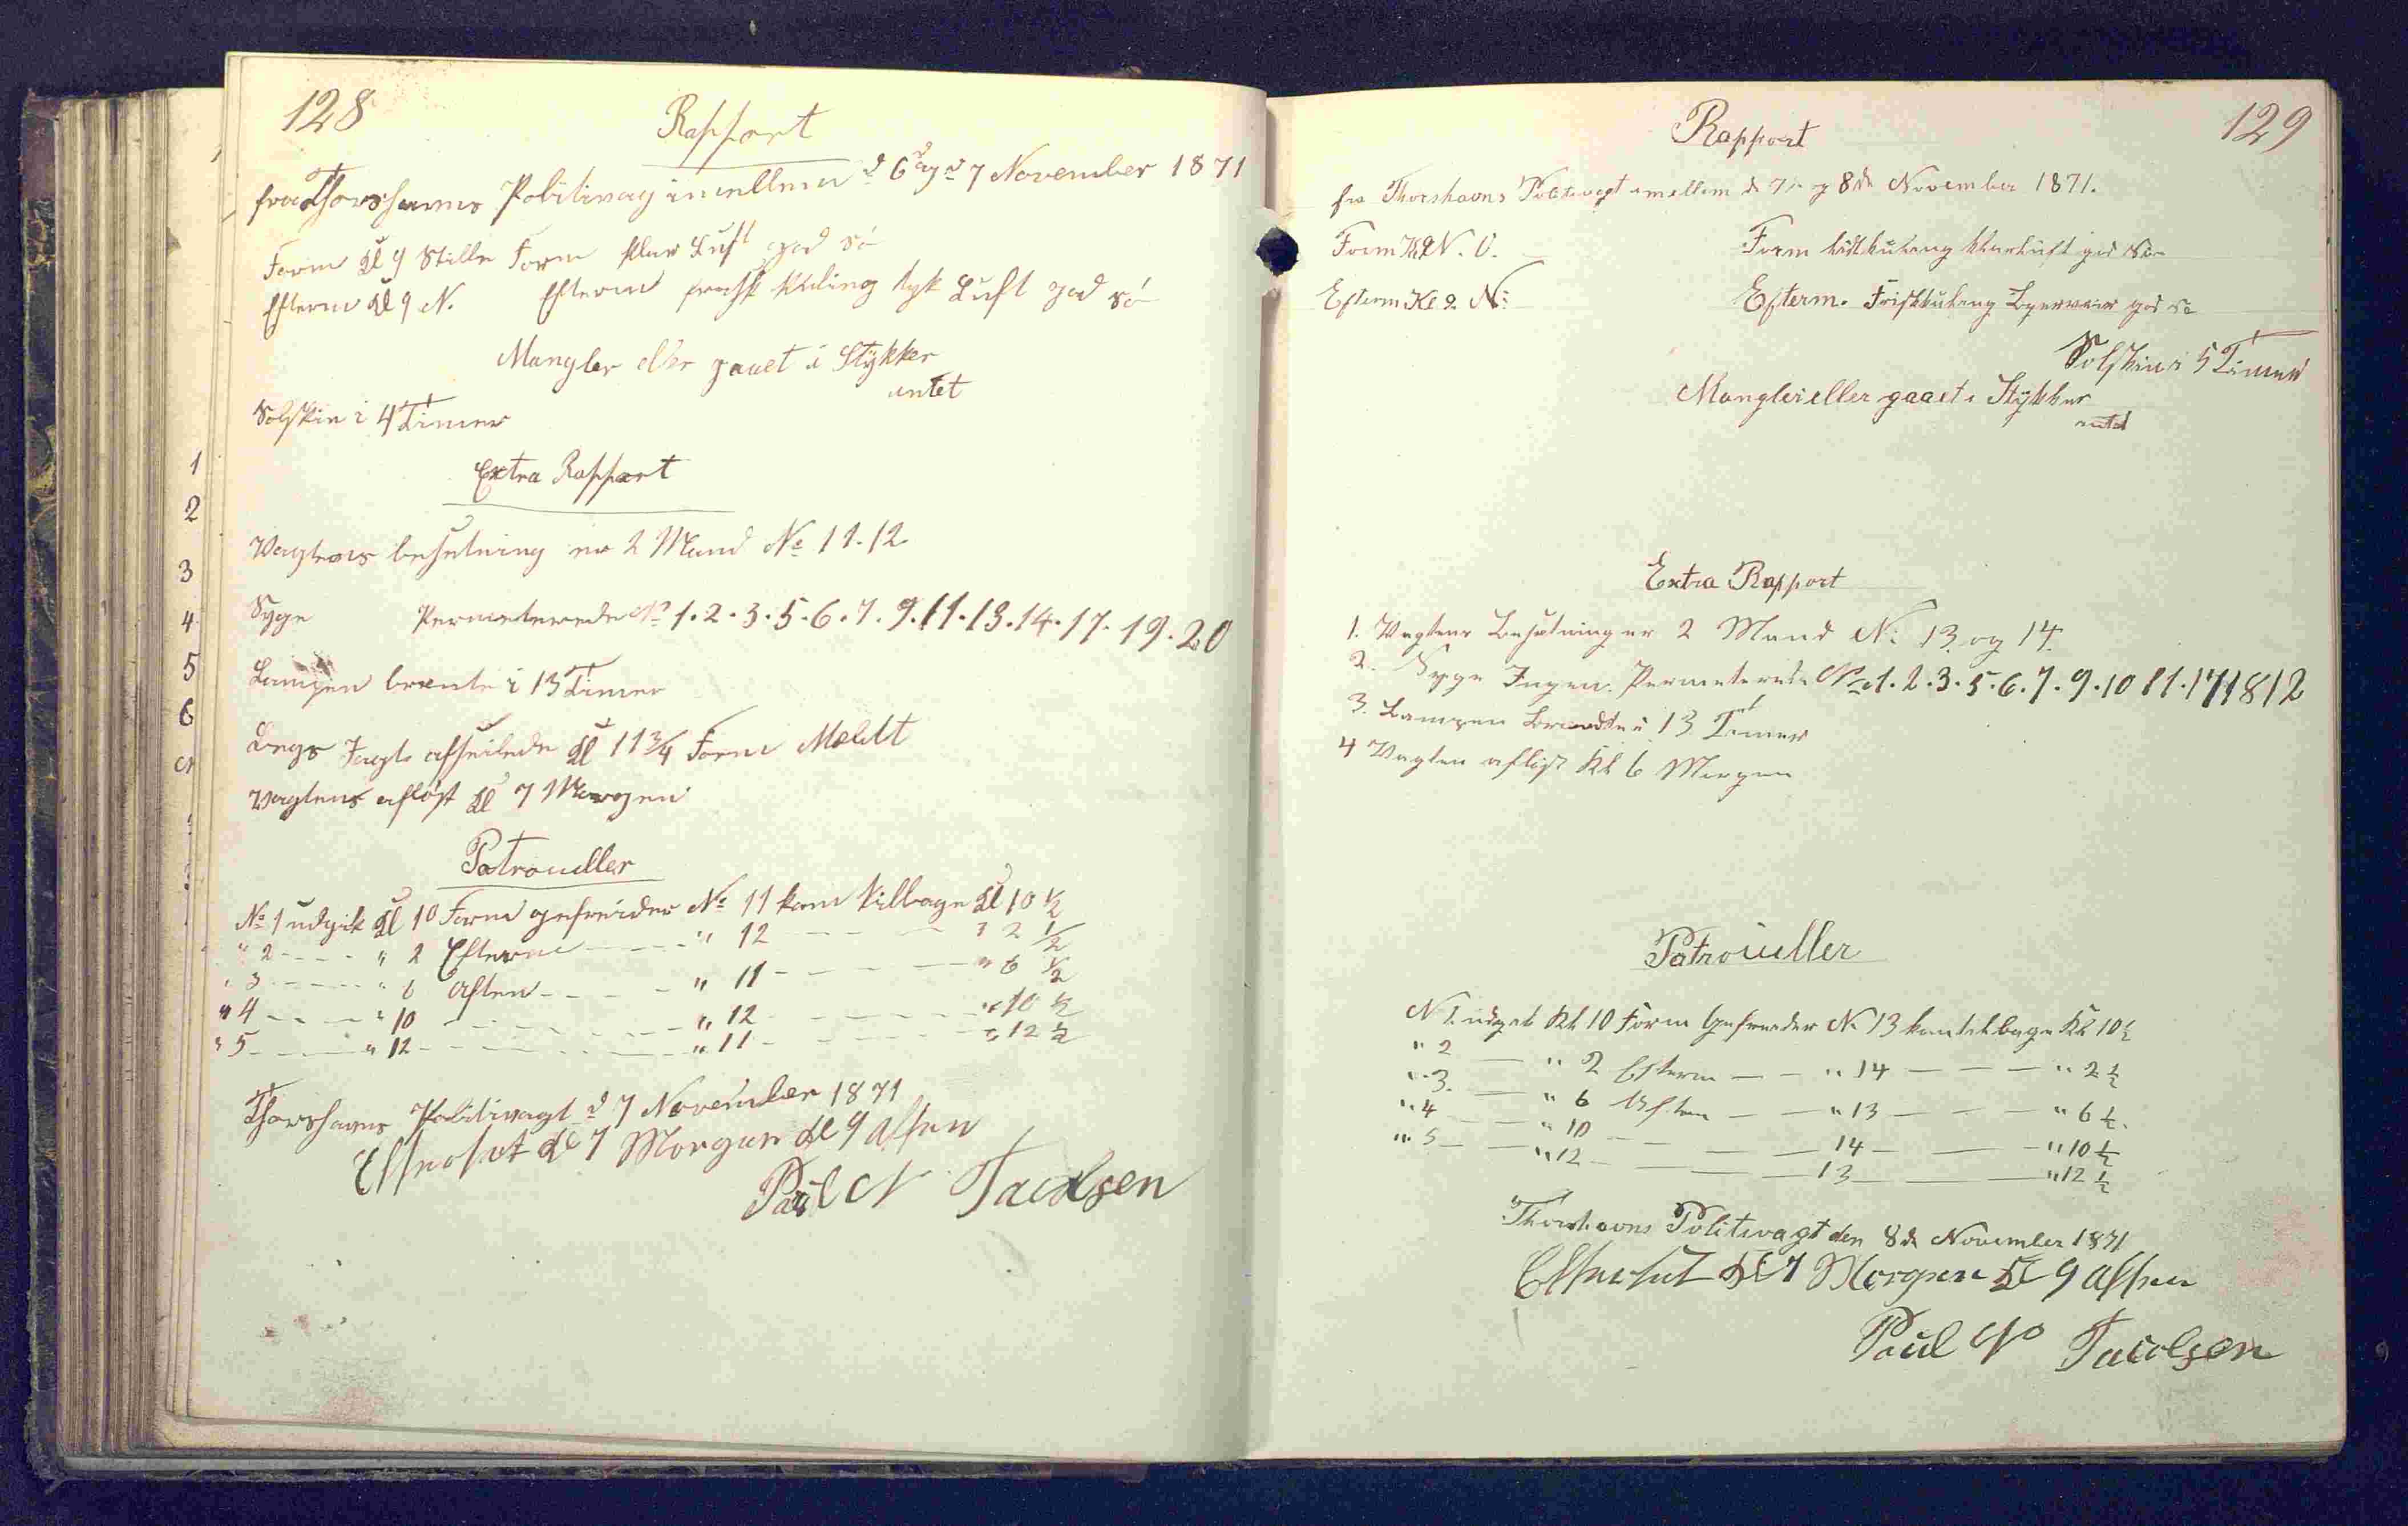 128
Rapport
fra Thorshavns Politivagt imellem d 6 og d 7 November 1871
Form Kl 9 Stille Form klar Luft god sö
Efterm Kl 9 N. Efterm frisk Kuling tyk Luft god sö
Mangler eller gaaet i Stÿkker
intet
Solskin i 4 Timer
Extra Rapport
Vagtens besetning er 2 Mand No 11. 12
Syge Permeterede No 1. 2. 3. 5. 6. 7. 9. 11. 13. 14. 17. 19. 20
Lampen brente i 13 Timer
Jagt afseilede Kl 11 3/4 Form
Vagtens aflöst Kl 7 Morgen
Patrouller
No 1 udgik Kl 10 Form gefreider No 11 kom tilbage Kl 10 1/2
" 2 - - - - " 2 Efterm - - - - " 12 - - - - " 2 1/2
" 3 - - - - " 6 Aften - - - - " 11 - - - - " 6 1/2
" 4 - - - - " 10 - - - - " 12 - - - - " 10 1/2
" 5 - - - - " 12 - - - - " 11 - - - - " 12 1/2
Thorshavns Politivagt d 7 November 1871
Efterset Kl 7 Morgen Kl 9 Aften
Paul N Jacobsen
1
2
3
4
5
6
129
Rapport
fra Thorshavns Politivagt imellem d 7de og 8de November 1871.
Form Kl 9 N. O. Form lidt kuling klar luft god sö
Efterm Kl 9 N: Efterm. Frisk kuling god sö
Solskin i 5 Timer
Mangler eller gaaet i Stÿkker
intet
Extra Rapport
1. Vagtens Besetning er 2 Mand No: 13 og 14.
2. Syge Ingen. Permeterede No 1. 2. 3. 5. 6. 7. 9. 10 11. 17 18 12
3. Lampen Brendte i 13 Timer
4 Vagten aflöst Kl 6 Morgen
Patrouller
N 1. udgik Kl 10 Form Gefreider No 13 kom tilbage Kl 10 1/2
" 2 — " 2 Efterm — — " 14 — — — " 2 1/2
" 3. — " 6 Aften — — " 13 — — " 6 1/2.
" 4 — — " 10 — — — 14 — — " 10 1/2
" 5 — — " 12 — — — 13 — — " 12 1/2
Thorshavns Politivagt den 8de November 1871
Efterset Kl 7 Morgen Kl 9 Aften
Paul N Jacobsen